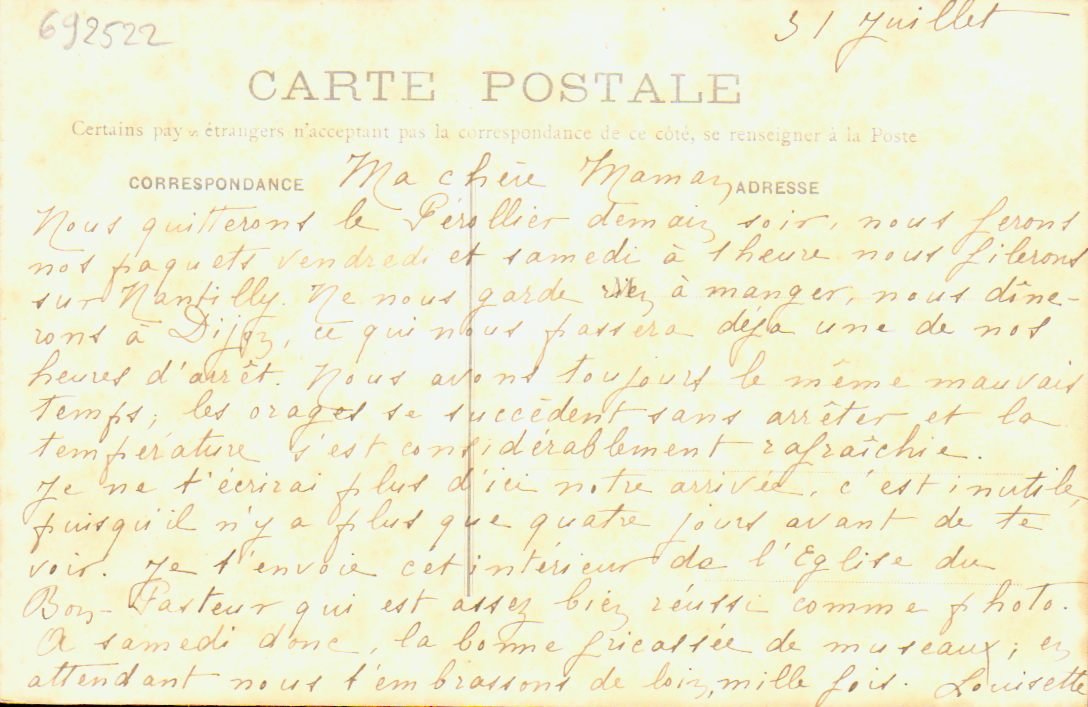 692522
31 Juillet
CARTE POSTALE
Certains pays étrangers n'acceptant pas la correspondance de ce côté, se renseigner à la Poste
CORRESPONDANCE Ma chère Maman ADRESSE
Nous quitterons le Pérollier demain soir, nous ferons
nos paquets vendredi et samedi à 1 heure nous filerons
sur Nantilly. Ne nous garde rien à manger, nous dîne-
rons à Dijon, ce qui nous passera déja une de nos
heures d'arrêt. Nous avons toujours le même mauvais
temps, les orages se succèdent sans arrêter et la
température s'est considérablement rafraîchie.
Je ne t'écrirai plus d'ici notre arrivée, c'est inutile,
puisqu'il n'y a plus que quatre jours avant de te
voir. Je t'envoie cet intérieur de l'Eglise du
Bon-Pasteur qui est assez bien réussi comme photo.
A samedi donc, la bonne fricassée de museaux; en
attendant nous t'embrassons de loin, mille fois. Louisette